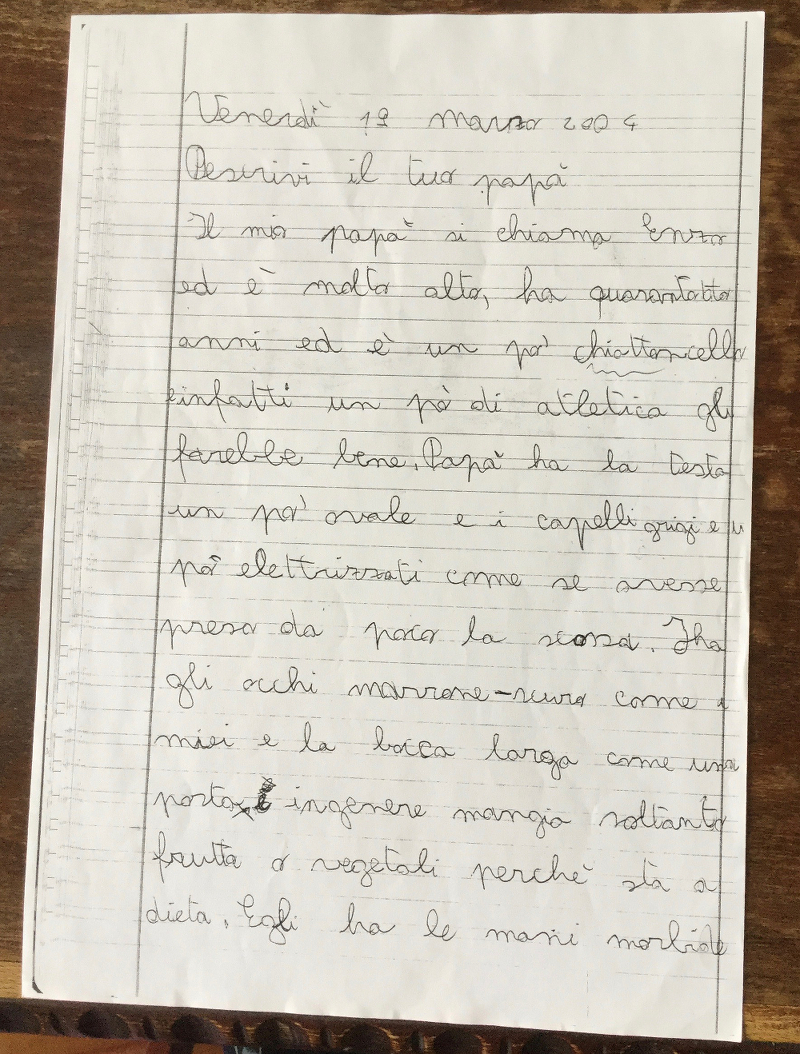 Venerdì 19 marzo 2004
Descrivi il tuo papà
Il mio papà si chiama Enzo
ed è molto alto, ha quarantotto
anni ed è un po' chiattoncello
infatti un pò di atletica gli
farebbe bene. Papà ha la testa
un po' ovale e i capelli grigi e u
pò elettrizzati come se avesse
preso da poco la scossa. Iha
gli occhi marrone-scuro come i
miei e la bocca larga come una
porta, ingenere mangia soltanto
frutta o vegetali perchè stà a
dieta. Egli ha le mani morbide